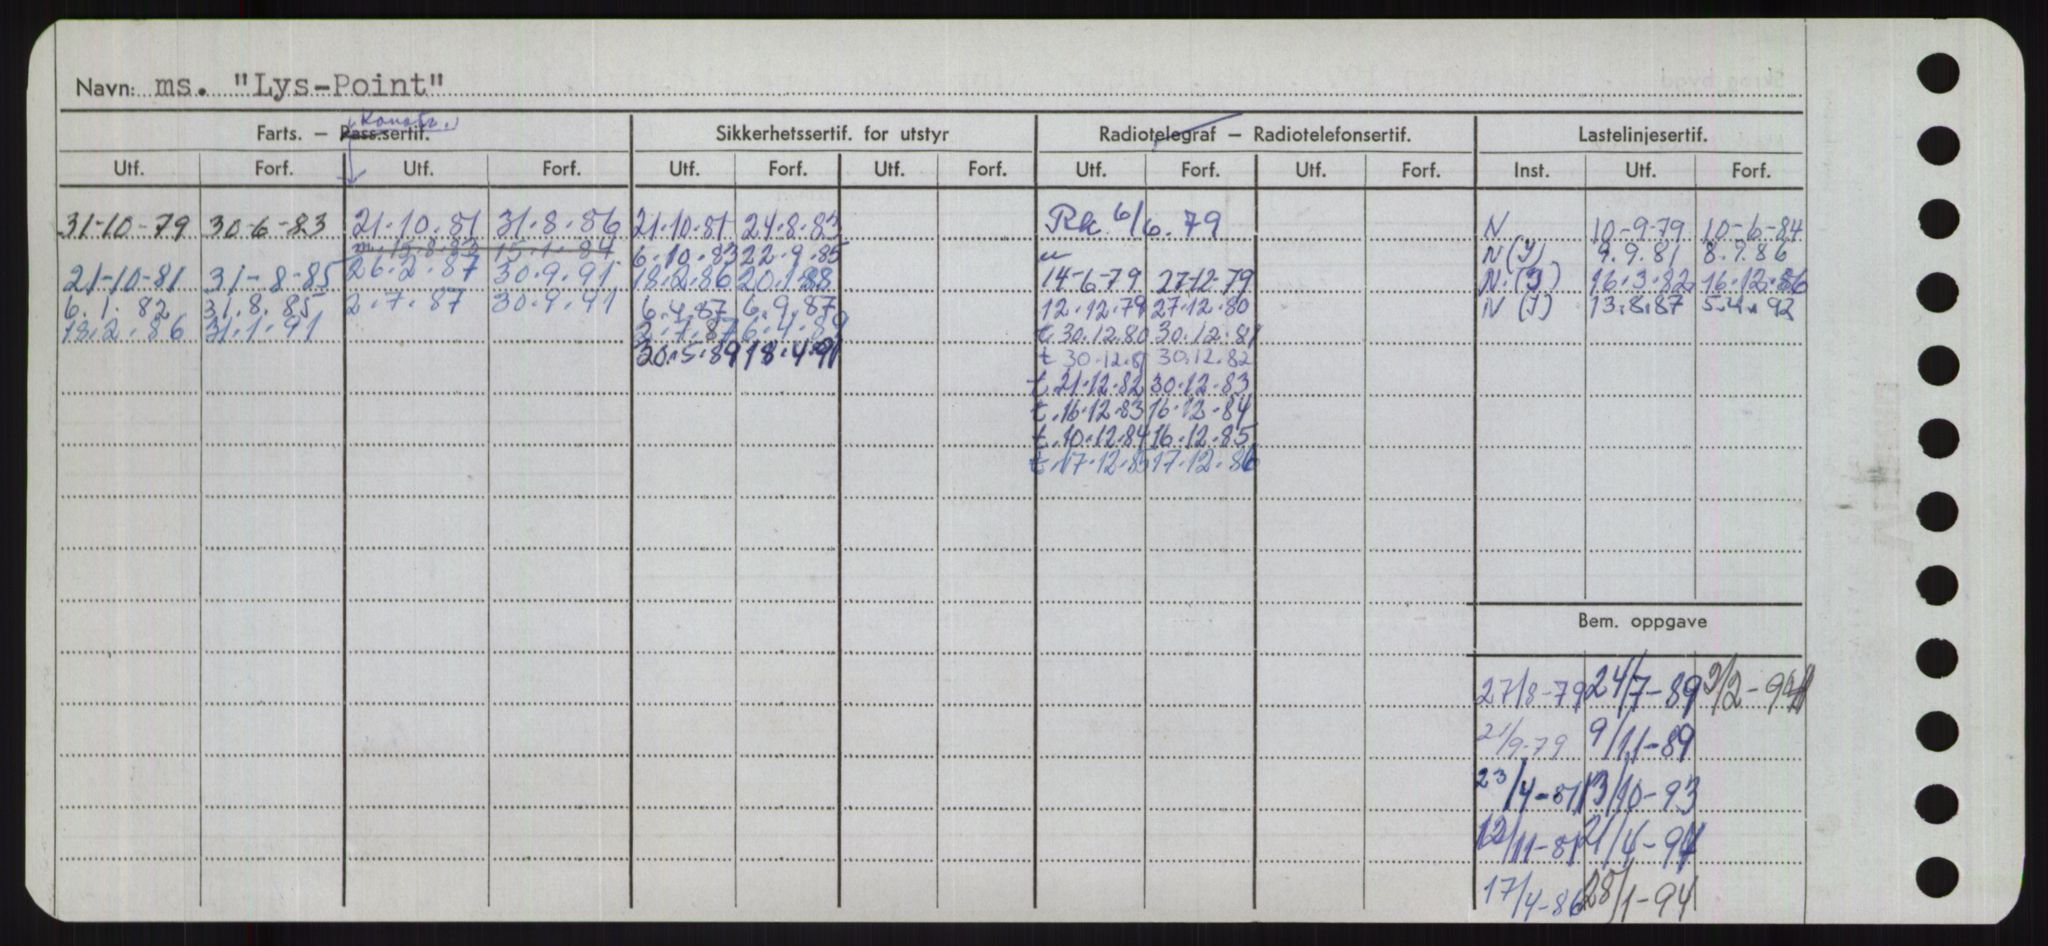 Navn: ms. "Lys-Point"
Konstr.
Farts. – Pass.sertif. Sikkerhetssertif. for utstyr Radiotelegraf – Radiotelefonsertif. Lastelinjesertif.
Utf. Forf. Utf. Forf. Utf. Forf. Utf. Forf. Utf. Forf. Utf. Forf. Inst. Utf. Forf.
31-10-79 30-6-83 21.10.81 31.8.86 21.10.81 24.8.83 Ra. 6/6.79 N 10-9-79 10-6-84
m. 15.8.83 15.1.84 6.10.83 22.9.85 N(I) 9.9.81 8.9.86
21-10-81 31-8-85 26.2.87 30.9.91 18.2.86 20.1.88 14-6-79 27-12-79 N.(I) 16.3.82 16.12.86
6.1.82 31.8.85 2.7.87 30.9.91 6.4.87 6.9.87 12.12.79 27.12.80 N(I) 13.8.87 5.4.92
18.2.86 31.1.91 2.7.87 6.4.89 t. 30.12.80 30.12.81
30.5.89 18.4.91 t 30.12.81 30.12.82
t. 21.12.82 30.12.83
t. 16.12.83 16.12.84
t. 10.12.84 16.12.85
t. 17.12.85 17.12.86
Bem. oppgave
27/8-79 24/7-89 3/2-94
21/9-79 9/11-89
23/4-81 13/10-93
12/11-81 21/4-94
17/4-86 28/1-94